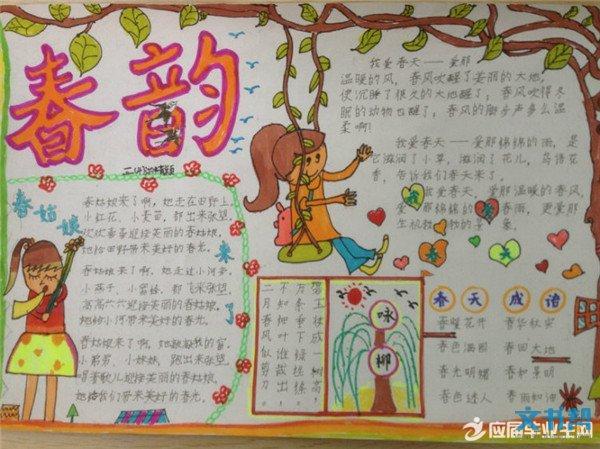 春韵
春姑娘来了
春姑娘来了啊,她走在田野上。
小红花、小麦苗,都出来张望。
欢欢喜喜迎接美丽的春姑娘,
她给田野带来美好的春光。
春姑娘来了啊,她走过小河旁。
小燕子、小蜜蜂,都飞来张望。
高高兴兴迎接美丽的春姑娘,
她给小河带来美好的春光。
春姑娘来了啊,她
小弟弟、小妹妹,跑出来张望。
唱着歌儿迎接美丽的春姑娘,
她给我们带来美好的春光。
我爱春天——爱那
温暖的风,春风吹醒了美丽的大地,
使沉睡了很久的大地醒了;春风吹得冬
眠的动物也醒了;春风的脚步声多么温
柔啊!
我爱春天——爱那绵绵的雨,是
它滋润了小草,滋润了花儿,鸟语花
香,告诉我们春天来了。
我爱春天,爱那温暖的春风,
爱那绵绵的春雨,更爱那
生机勃勃的景象。
我爱春天
咏柳
碧玉妆成一树高,
万条垂下绿丝绦。
不知细叶谁裁出,
二月春风似剪刀。
春天成语
春暖花开 春华秋实
春色满园 春回大地
春光明媚 春和景明
春色迷人 春雨如油
应届毕业生网
文书帮